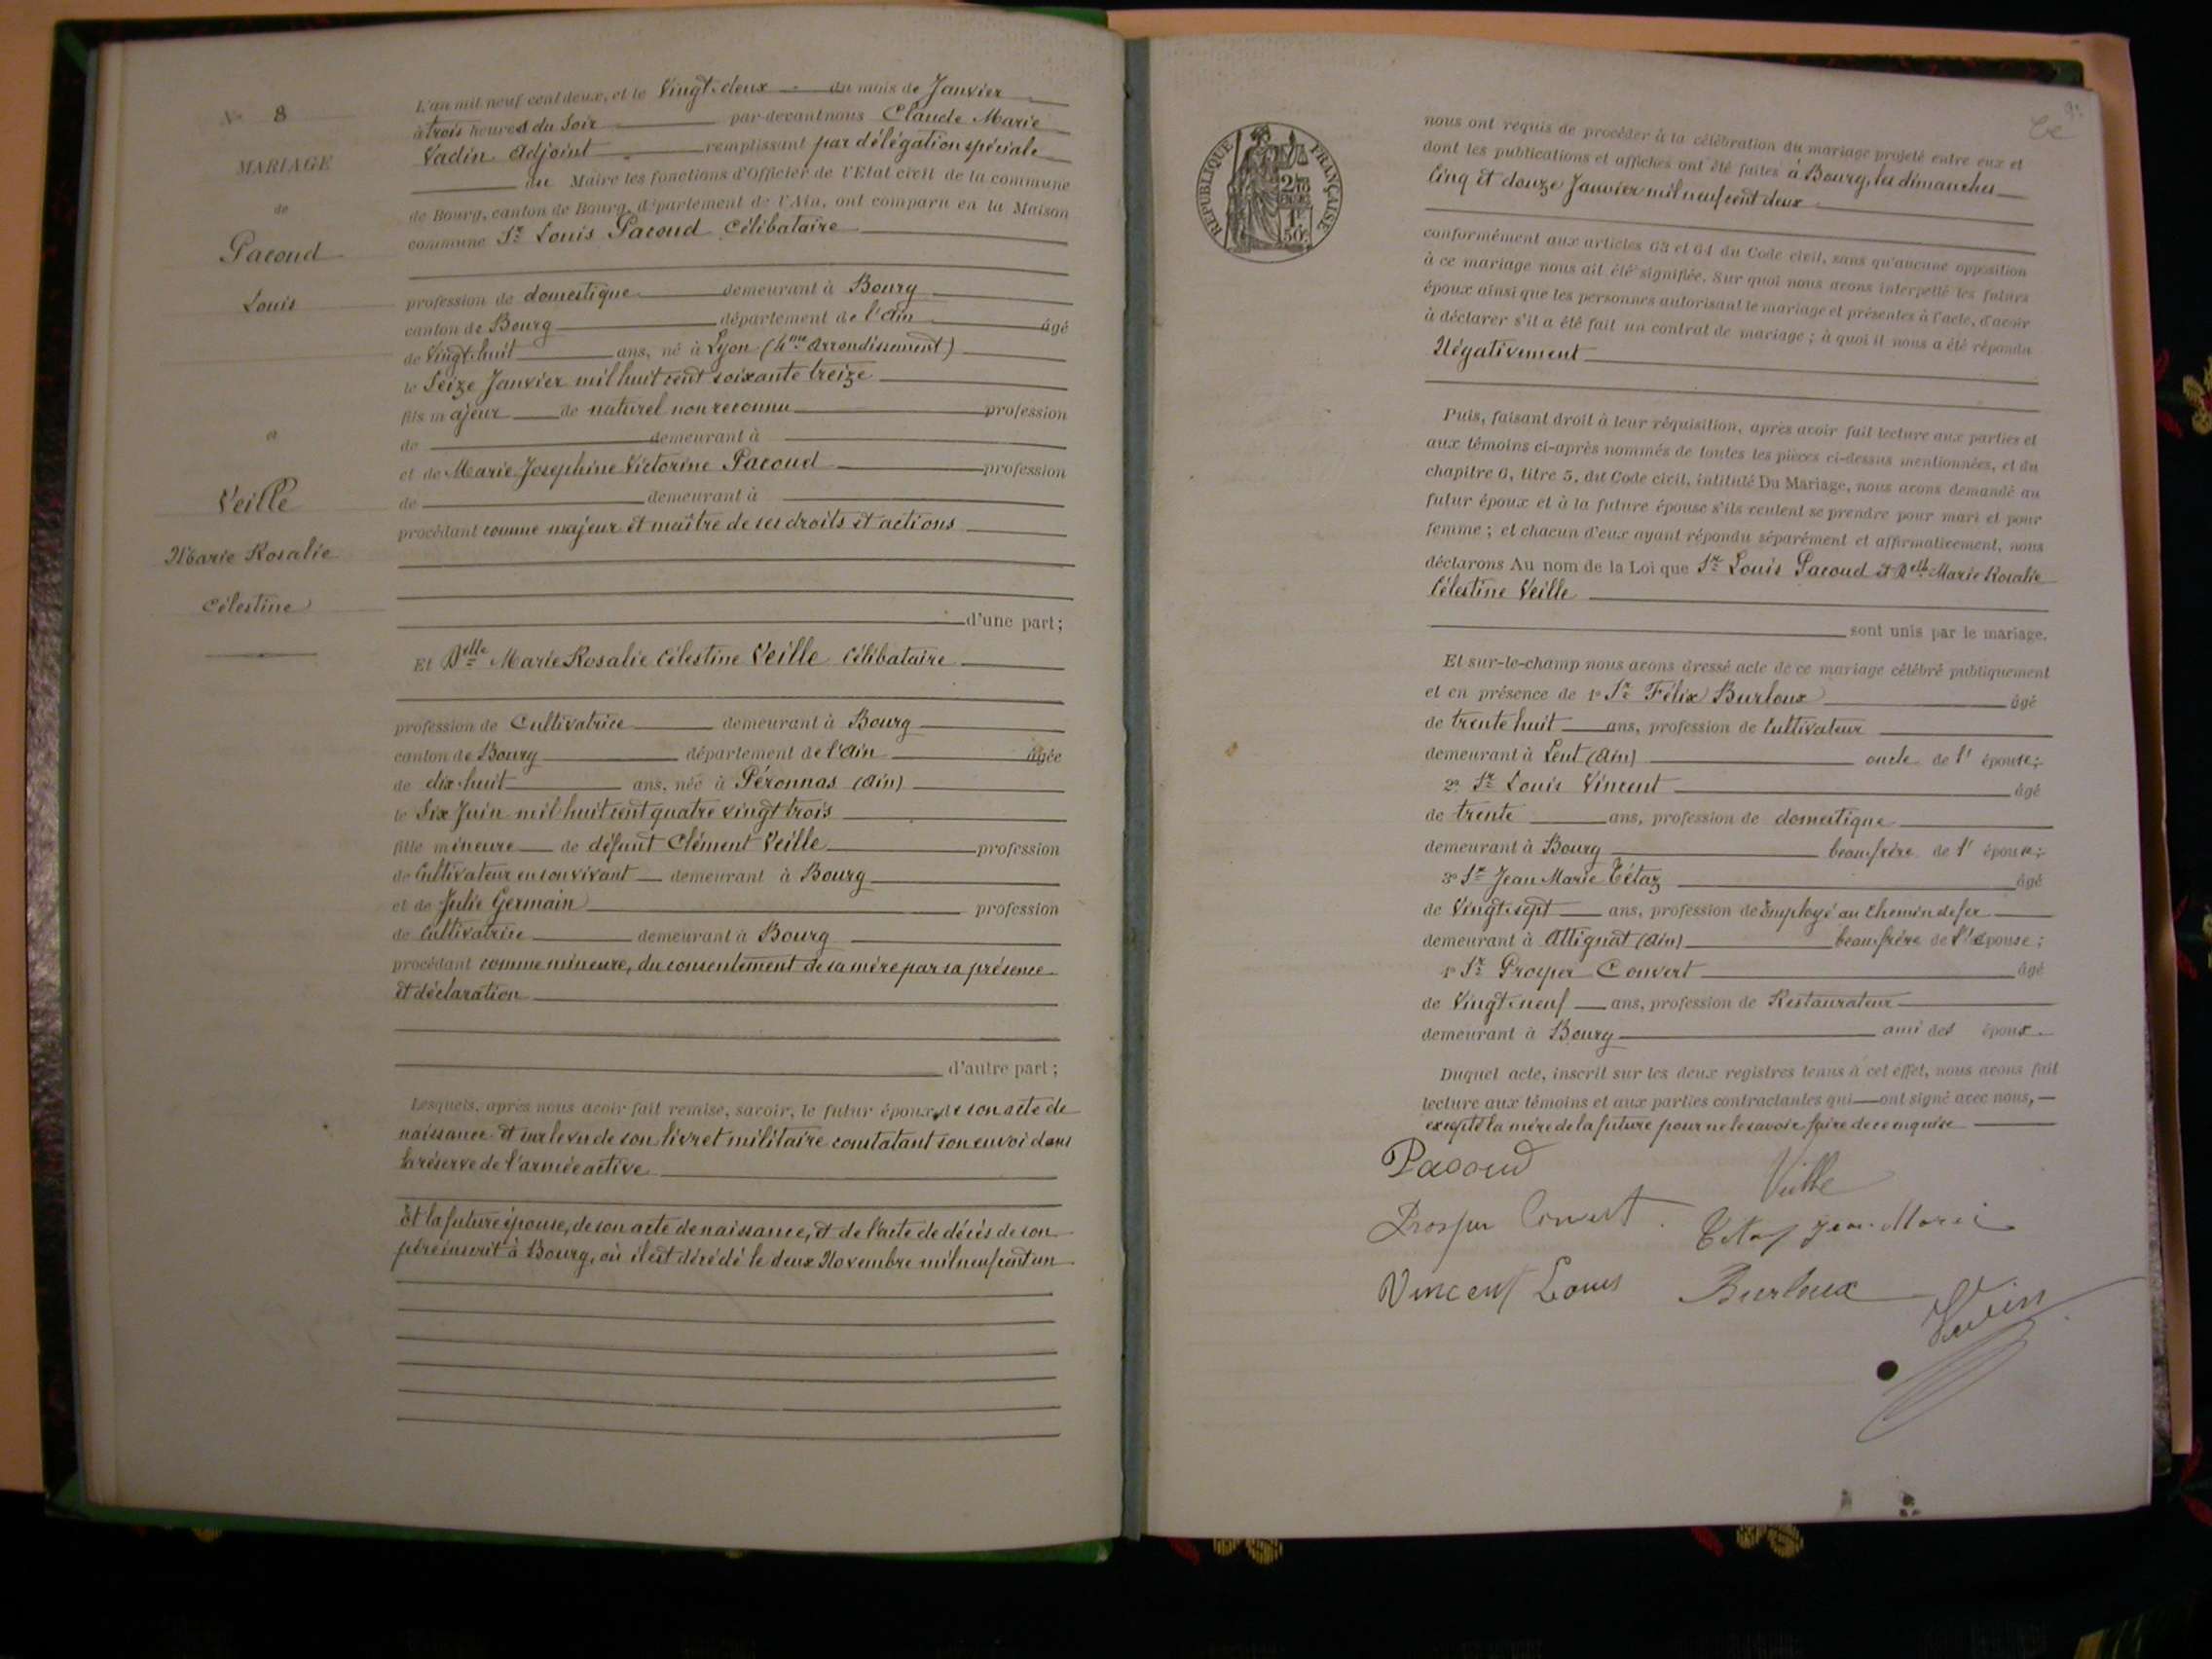 N° 8
MARIAGE
de
Pacoud
Louis
et
Veille
Marie Rosalie
Célestine
L'an mil neuf cent deux, et le Vingt-deux du mois de Janvier
à trois heures du Soir par-devant nous Claude Marie
Vadin Adjoint remplissant par délégation spéciale
du Maire les fonctions d'Officier de l'Etat civil de la commune
de Bourg, canton de Bourg, département de l'Ain, ont comparu en la Maison
commune Sr Louis Pacoud Célibataire
profession de domestique demeurant à Bourg
canton de Bourg département de l'Ain âgé
de Vingt-huit ans, né à Lyon (4me Arrondissement)
le Seize Janvier mil huit cent soixante treize
fils majeur de naturel non reconnu profession
de demeurant à
et de Marie Josephine Victorine Pacoud profession
de demeurant à
procédant comme majeur et maître de ses droits et actions
d'une part;
Et Delle Marie Rosalie Célestine Veille Célibataire
profession de Cultivatrice demeurant à Bourg
canton de Bourg département de l'Ain âgée
de dix-huit ans, née à Péronnas (Ain)
le Six Juin mil huit cent quatre vingt trois
fille mineure de défunt Clément Veille profession
de Cultivateur en son vivant demeurant à Bourg
et de Julie Germain profession
de Cultivatrice demeurant à Bourg
procédant comme mineure, du consentement de sa mère par sa présence
et déclaration
d'autre part;
Lesquels, après nous avoir fait remise, savoir, le futur époux, de son acte de
naissance et sur le vu de son livret militaire constatant son envoi dans
la réserve de l'armée active
Et la future épouse, de son acte de naissance, et de l'acte de décès de son
père inscrit à Bourg, où il est décédé le deux Novembre mil neuf cent un
REPUBLIQUE FRANÇAISE
1F 50c
nous ont requis de procéder à la célébration du mariage projeté entre eux et
dont les publications et affiches ont été faites à Bourg, les dimanches
Cinq et douze Janvier mil neuf cent deux
conformément aux articles 63 et 64 du Code civil, sans qu'aucune opposition
à ce mariage nous ait été signifiée. Sur quoi nous avons interpellé les futurs
époux ainsi que les personnes autorisant le mariage et présentes à l'acte, d'avoir
à déclarer s'il a été fait un contrat de mariage; à quoi il nous a été répondu
Négativement
Puis, faisant droit à leur réquisition, après avoir fait lecture aux parties et
aux témoins ci-après nommés de toutes les pièces ci-dessus mentionnées, et du
chapitre 6, titre 5, du Code civil, intitulé Du Mariage, nous avons demandé au
futur époux et à la future épouse s'ils veulent se prendre pour mari et pour
femme; et chacun d'eux ayant répondu séparément et affirmativement, nous
déclarons Au nom de la Loi que Sr Louis Pacoud et Delle Marie Rosalie
Célestine Veille
sont unis par le mariage.
Et sur-le-champ nous avons dressé acte de ce mariage célébré publiquement
et en présence de 1° Sr Félix Burloux âgé
de trente huit ans, profession de Cultivateur
demeurant à Lent (Ain) oncle de l'épouse;
2° Sr Louis Vincent âgé
de trente ans, profession de domestique
demeurant à Bourg beau-frère de l'épouse;
3° Sr Jean Marie Tétaz âgé
de Vingt-sept ans, profession de Employé au Chemin de fer
demeurant à Attignat (Ain) beau-frère de l'épouse;
4° Sr Prosper Convert âgé
de Vingt-neuf ans, profession de Restaurateur
demeurant à Bourg ami des époux.
Duquel acte, inscrit sur les deux registres tenus à cet effet, nous avons fait
lecture aux témoins et aux parties contractantes qui ont signé avec nous,
excepté la mère de la future pour ne le savoir faire de ce enquise
Pacoud Veille
Prosper Convert Tétaz Jean-Marie
Vincent Louis Burloux
Vadin